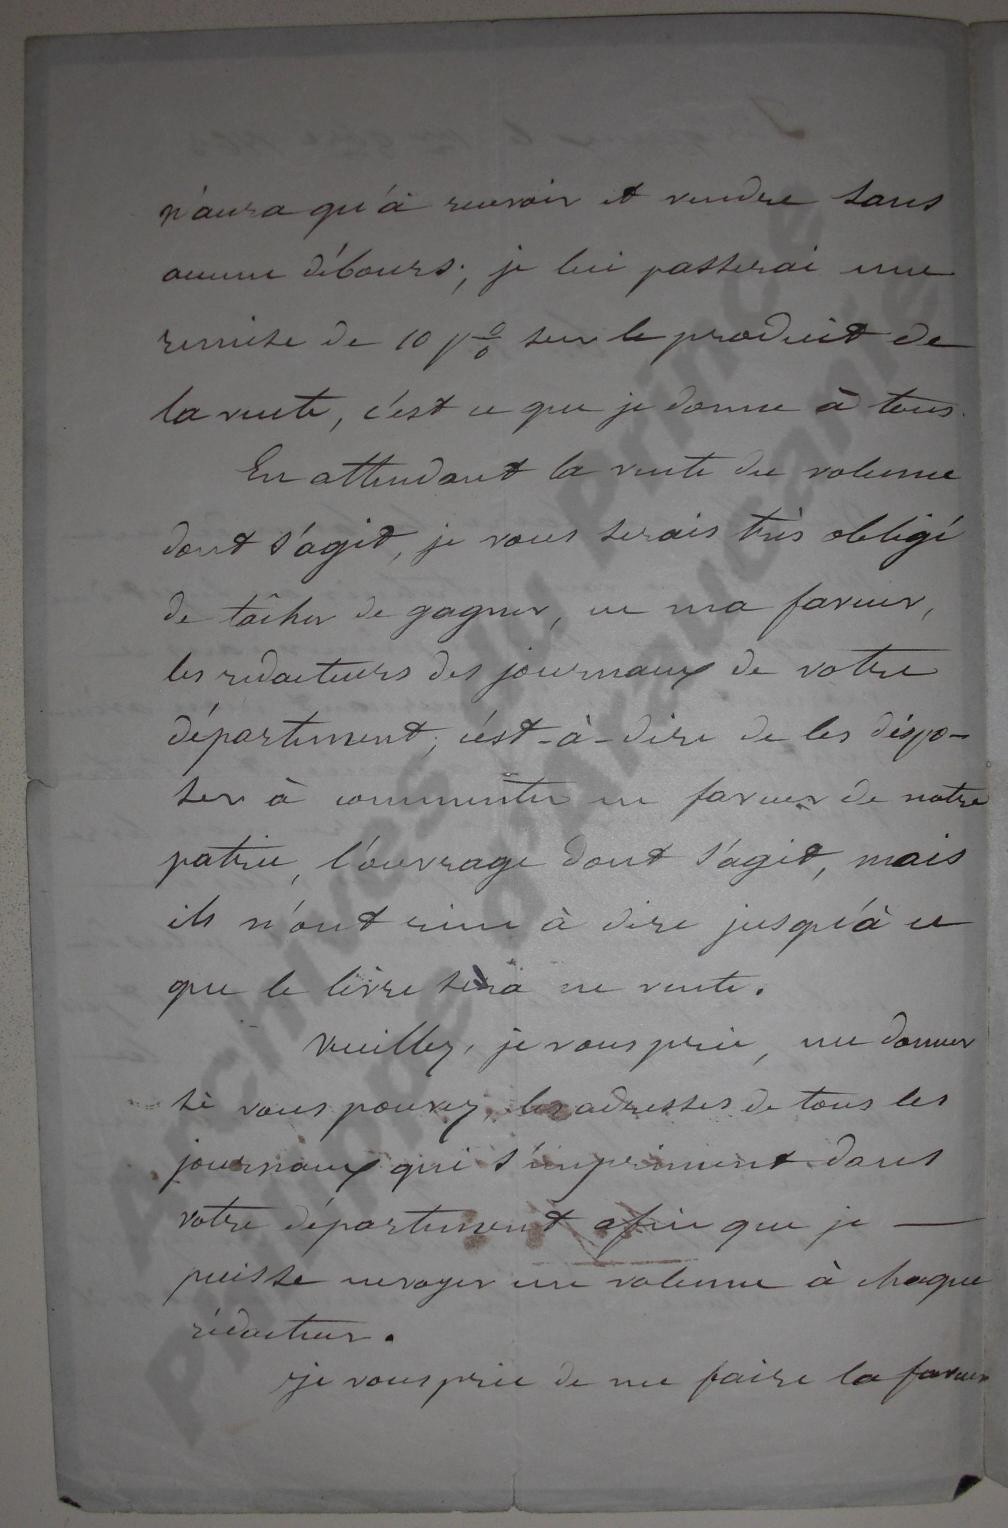 n'aura qu'à recevoir et vendre sans
aucun débours; je lui passerai une
remise de 10 p % sur le produit de
la vente, c'est ce que je donne à tous.
En attendant la vente du volume
dont s'agit, je vous serais très obligé
de tâcher de gagner, en ma faveur,
les rédacteurs des journaux de votre
département; c'est-à-dire de les dispo-
ser à commenter en faveur de notre
patrie, l'ouvrage dont s'agit, mais
ils n'ont rien à dire jusqu'à ce
que le livre sera en vente.
Veuillez, je vous prie, me donner
si vous pouvez, les adresses de tous les
journaux qui s'impriment dans
votre département afin que je —
puisse envoyer un volume à chaque
rédacteur.
Je vous prie de me faire la faveur
Archives du Prince
Philippe d'Araucanie